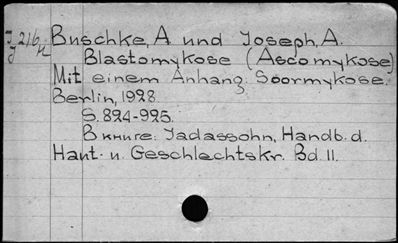 J 216 Buschke, A und Joseph, A.
Blastomykose (Ascomykose)
Mit einem Anhang: Soormykose.
Berlin, 1928
S. 824-925.
В книге: Jadassohn, Handb. d.
Haut- u. Geschlechtskr. Bd. II.